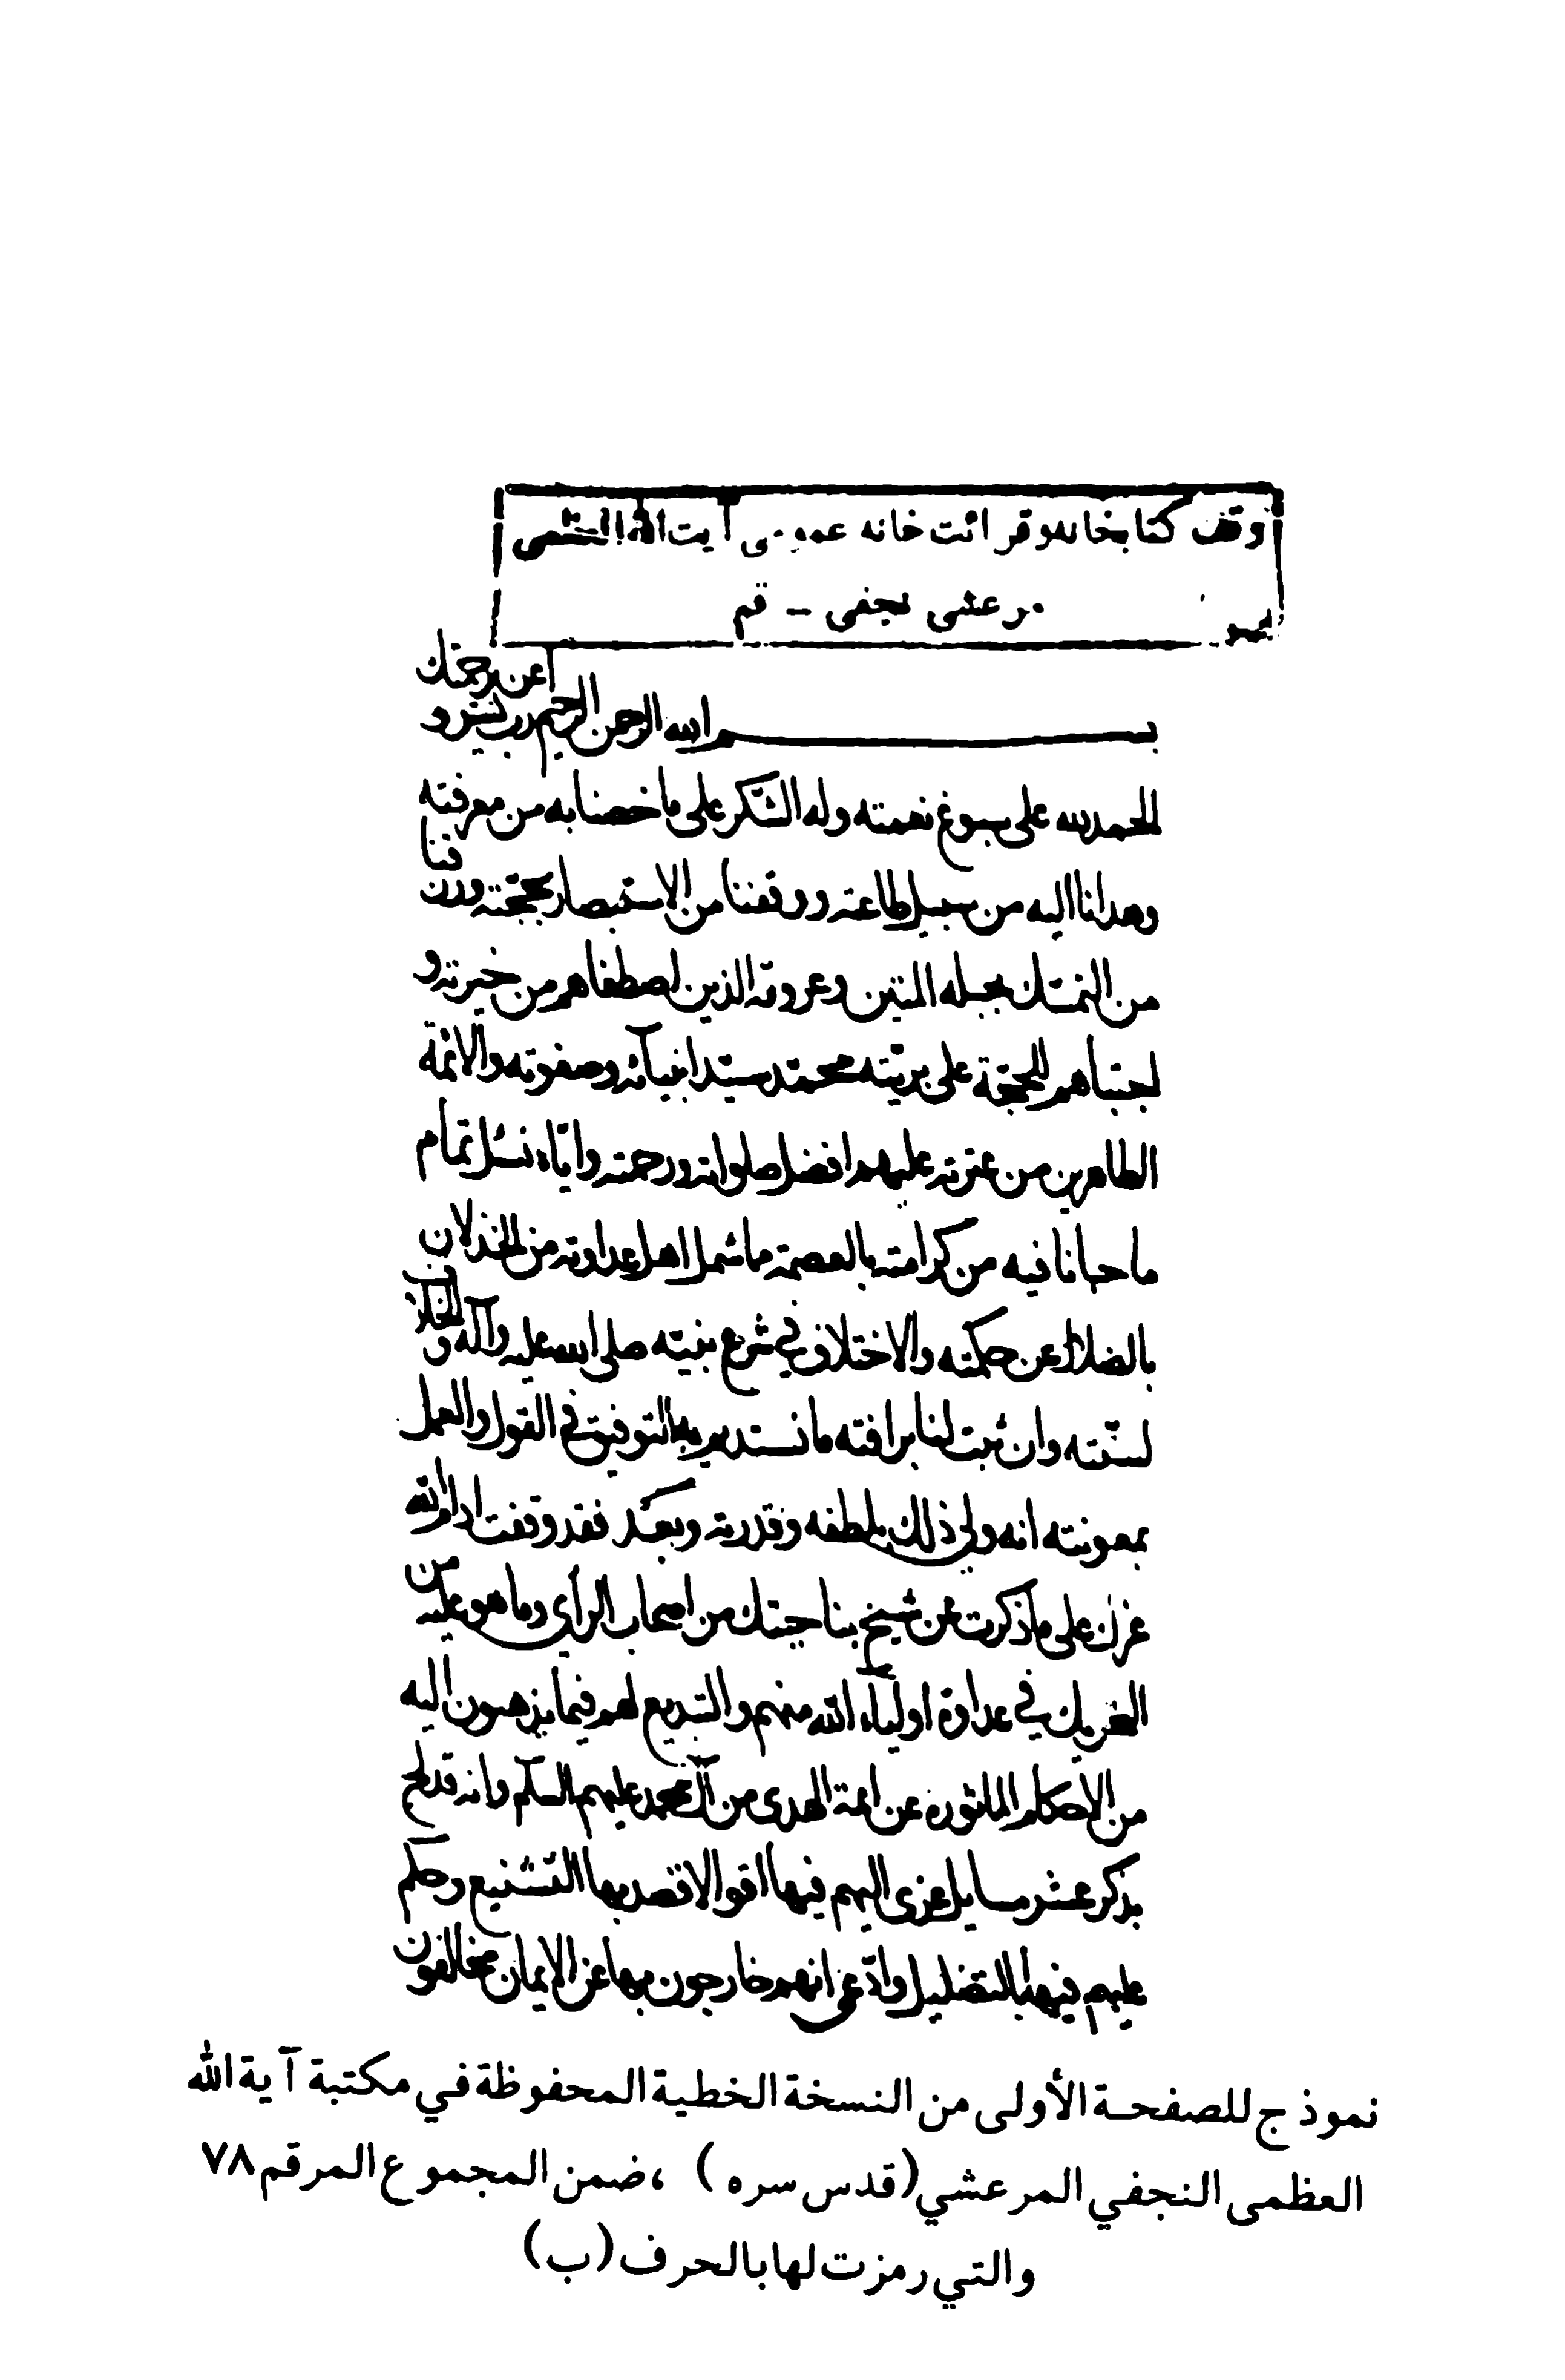 وقف كتابخانه وقرائت خانه عمومى آيت الله العظمى
مرعشى نجفى - قم
اعن برحمتك
بسم الله الرحمن الرحيم رب يسر و
الحمد لله على سبوغ نعمته وله الشكر على ما خصنا به من معرفته
وهدانا اليه من سبيل طاعته ووفقنا من الاستبصار بحجته ورزقنا
من التمسك بحبله المتين وعروته الذين اصطفاهم من خيرته و
اجتباهم للحجة على بريته محمد سيد انبيائه وصفوته والائمة
الطاهرين من عترته عليهم افضل صلواته ورحمته واياه نسئل تمام
ما حبانا فيه من كرامته بالعصمة مما شمل اهل عداوته من الخذلان
بالضلال عن حكمته والاختلاف في شرع نبيته صلى الله عليه وآله و
لسنته وان يثبت لنا برافته ما نستديم به التوفيق في القول والعمل
بمعونته انه ولي ذلك بلطفه وقدرته وبعد فقد وقفت ادام الله
عزك على ما ذكرت عن شيخ بناحيتك من اصحاب الرأى وما هو عليه من
في عداوة اولياء الله منهم والتبديع لهم فيما يذهبون اليه
من الاحكام الماثوره عن ائمة الهدى من آل محمد عليهم السلم وانه قد لهج
بذكر عشر مسايل عزى اليهم فيها اقوالا قصد بها التشنيع وحكم
عليهم فيها بالتضليل وادعى انهم خارجون بها عن الايمان مخالفون
نموذج للصفحة الأولى من النسخة الخطية المحفوظة في مكتبة آية الله
العظمى النجفي المرعشي (قدس سره) ،ضمن المجموع المرقم ٧٨
والتي رمزت لها بالحرف (ب)